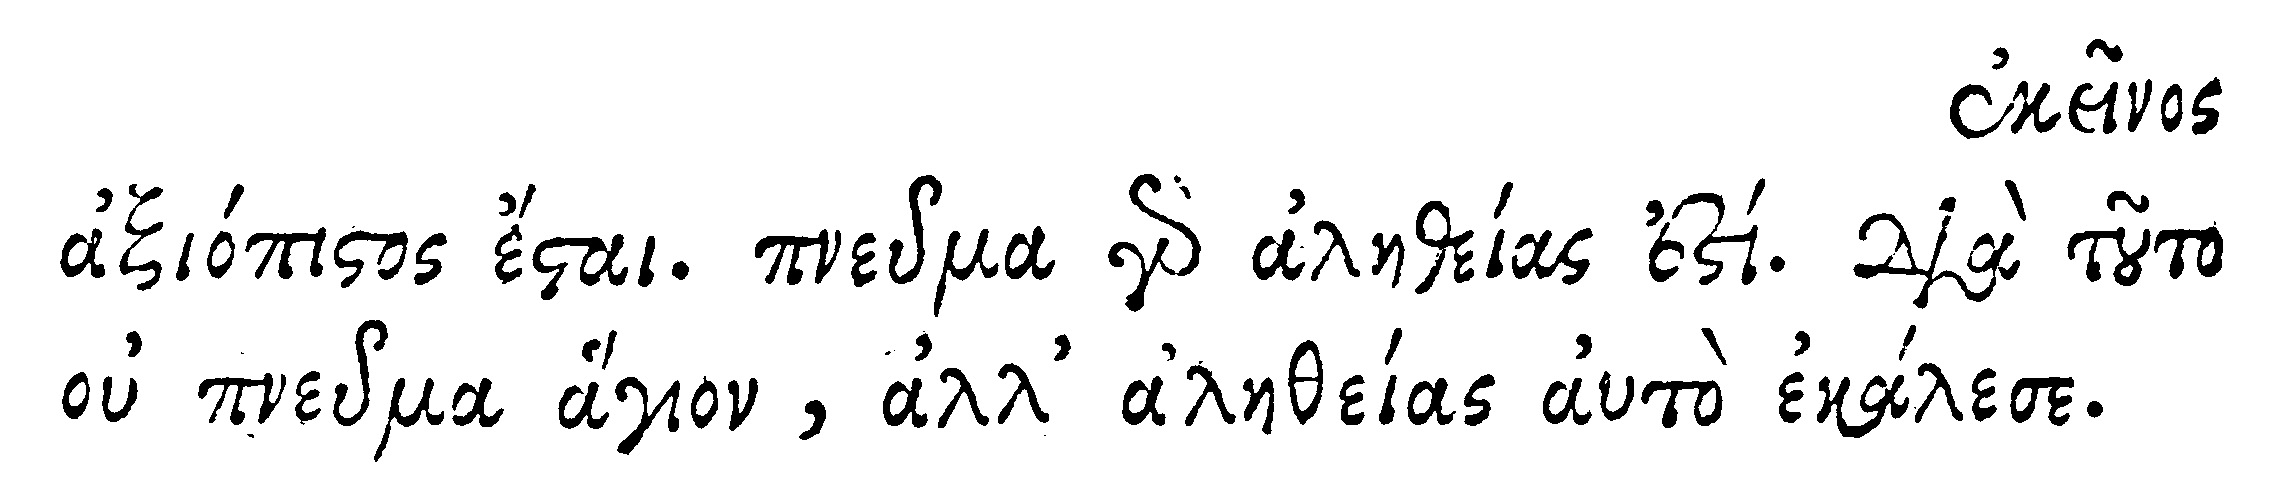 ἐκεῖνος
ἀξιόπιςος ἔςαι. πνεῦμα γὰρ ἀληθείας ἐςί. Διὰ τοῦτο
οὐ πνεῦμα ἅγιον, ἀλλ' ἀληθείας ἀυτὸ ἐκάλεσε.